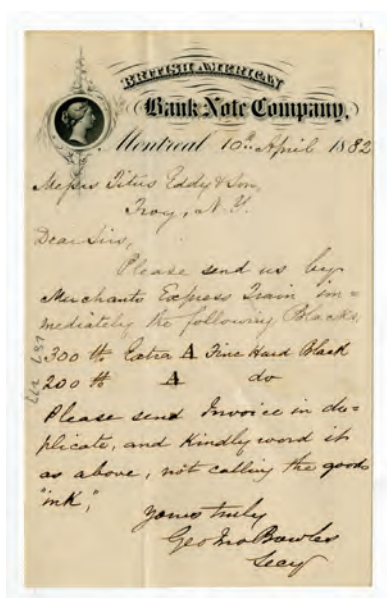 BRITISH AMERICAN
Bank Note Company,
Montreal 10th April 1882
Messrs Titus Eddy & Son,
Troy, N.Y.
Dear Sirs,
Please send us by
Merchants Express Train im=
mediately the following Blacks,
300 lb Extra A Fine Hard Black
200 lb A do
Please send Invoice in du=
plicate, and kindly word it
as above, not calling the goods
"ink",
Yours truly
Geo Jno Bowles
Secy